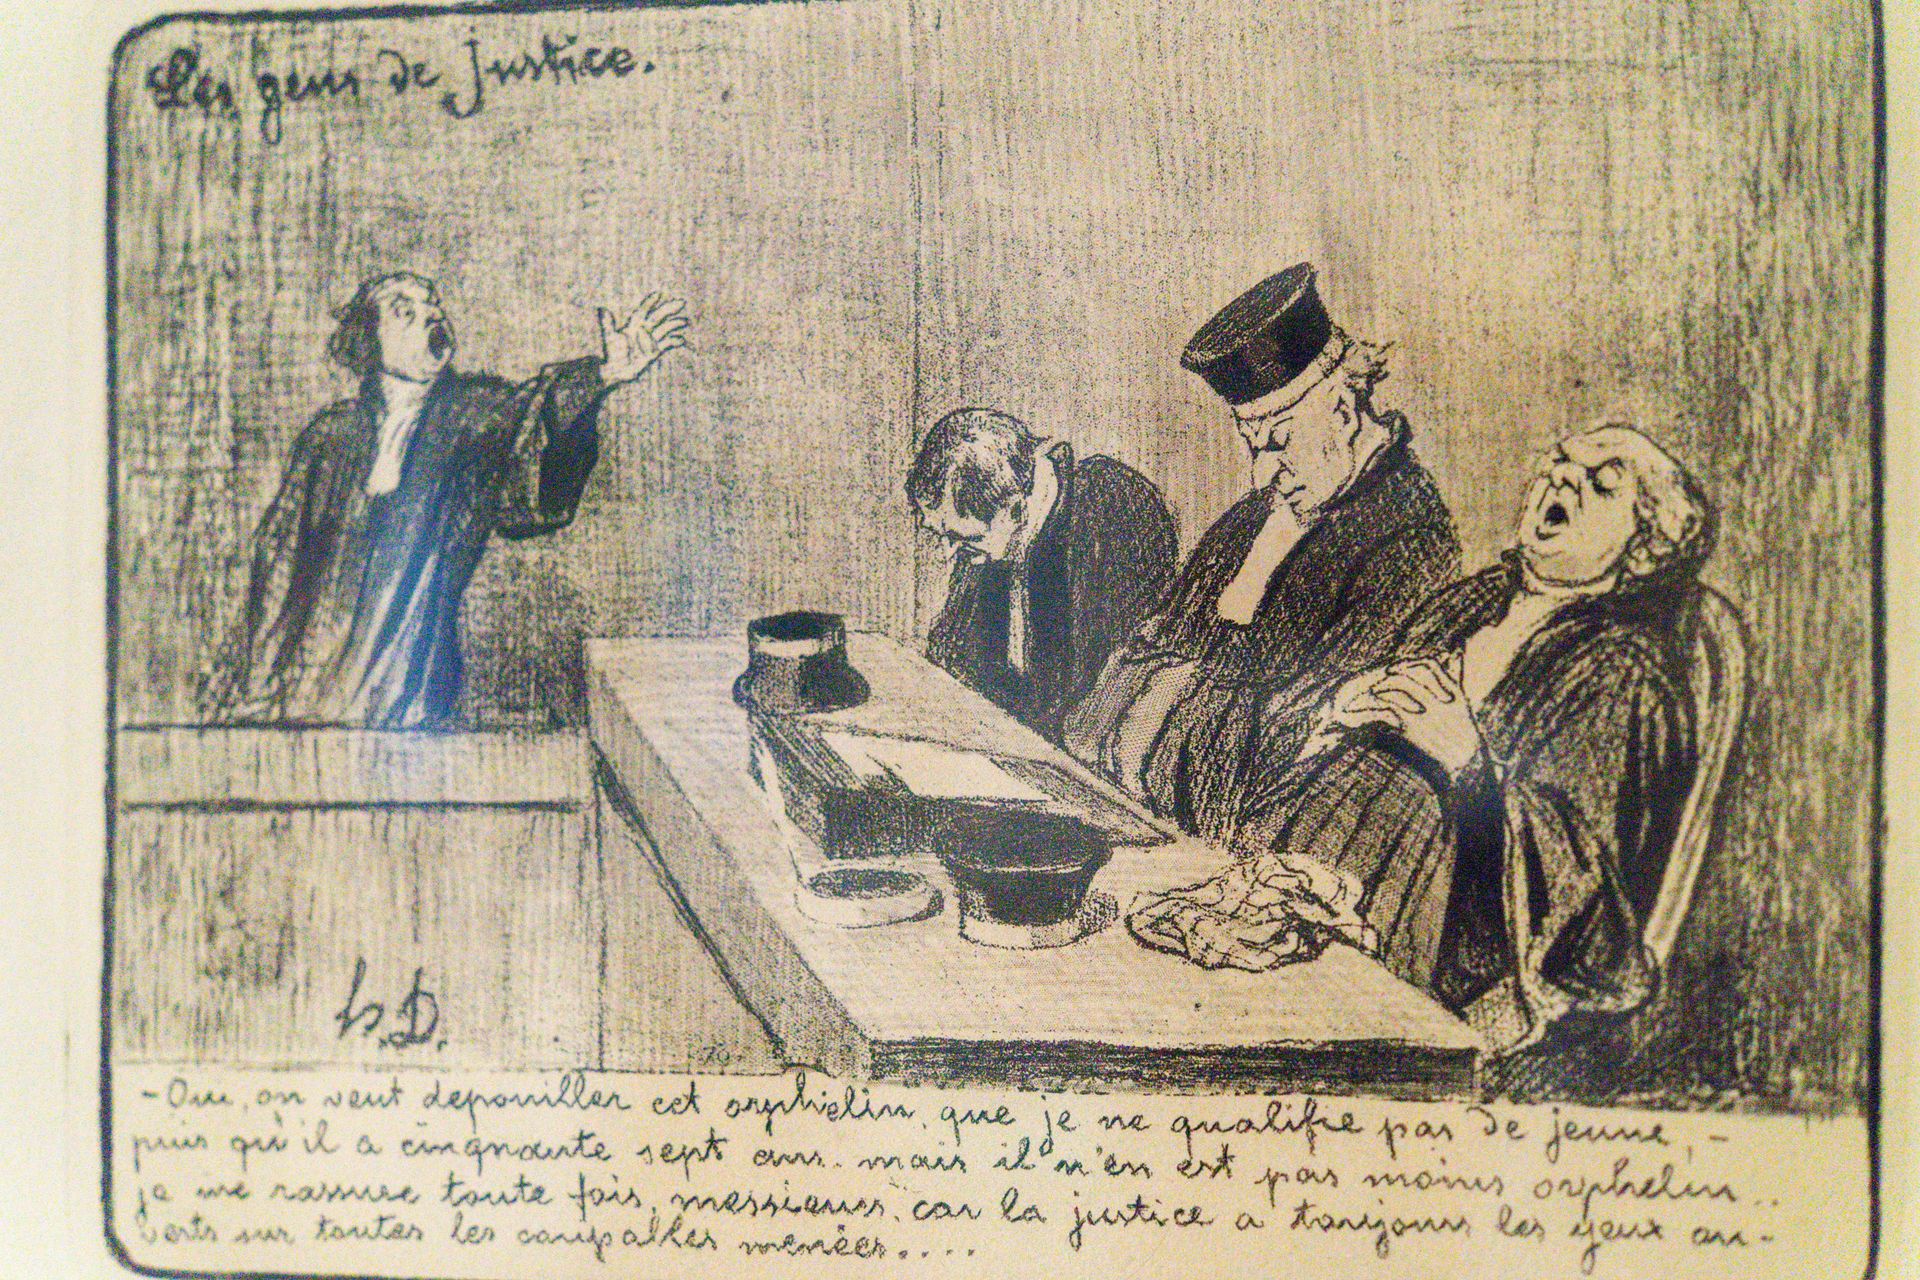 Les gens de justice.
h.D.
70
- Oui, on veut depouiller cet orphelin, que je ne qualifie pas de jeune, -
puis qu'il a cinquante sept ans. mais il n'en est pas moins orphelin..
je me rassure toute fois, messieurs, car la justice a toujours les yeux ou-
verts sur toutes les coupables menées....